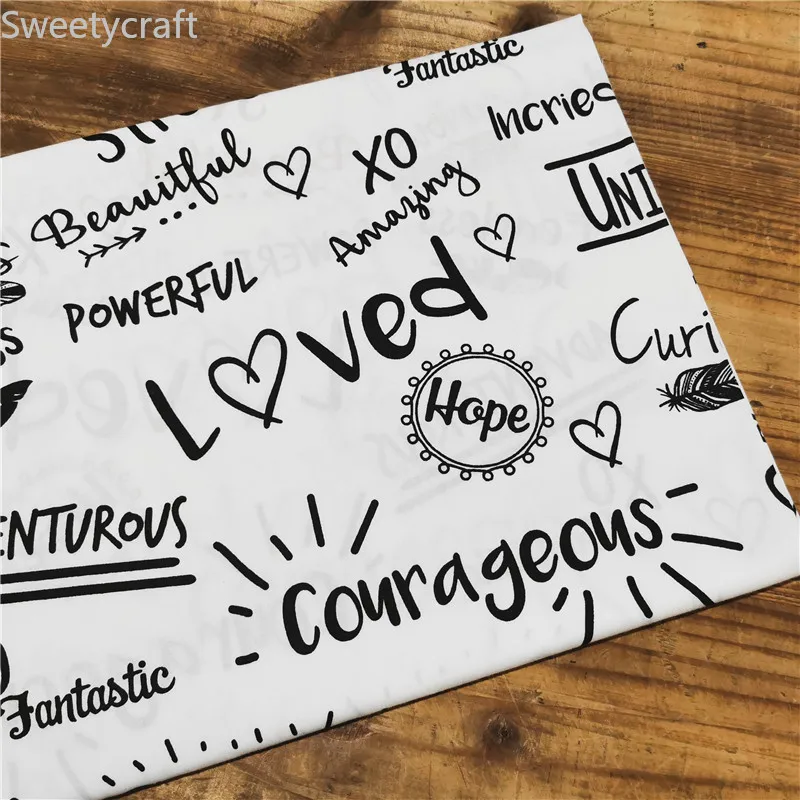 Sweetycraft
Fantastic
Incrie
Beauitful
XO
Amazing
UNI
POWERFUL
L♡ved
Curi
Hope
ENTUROUS
Courageous
Fantastic